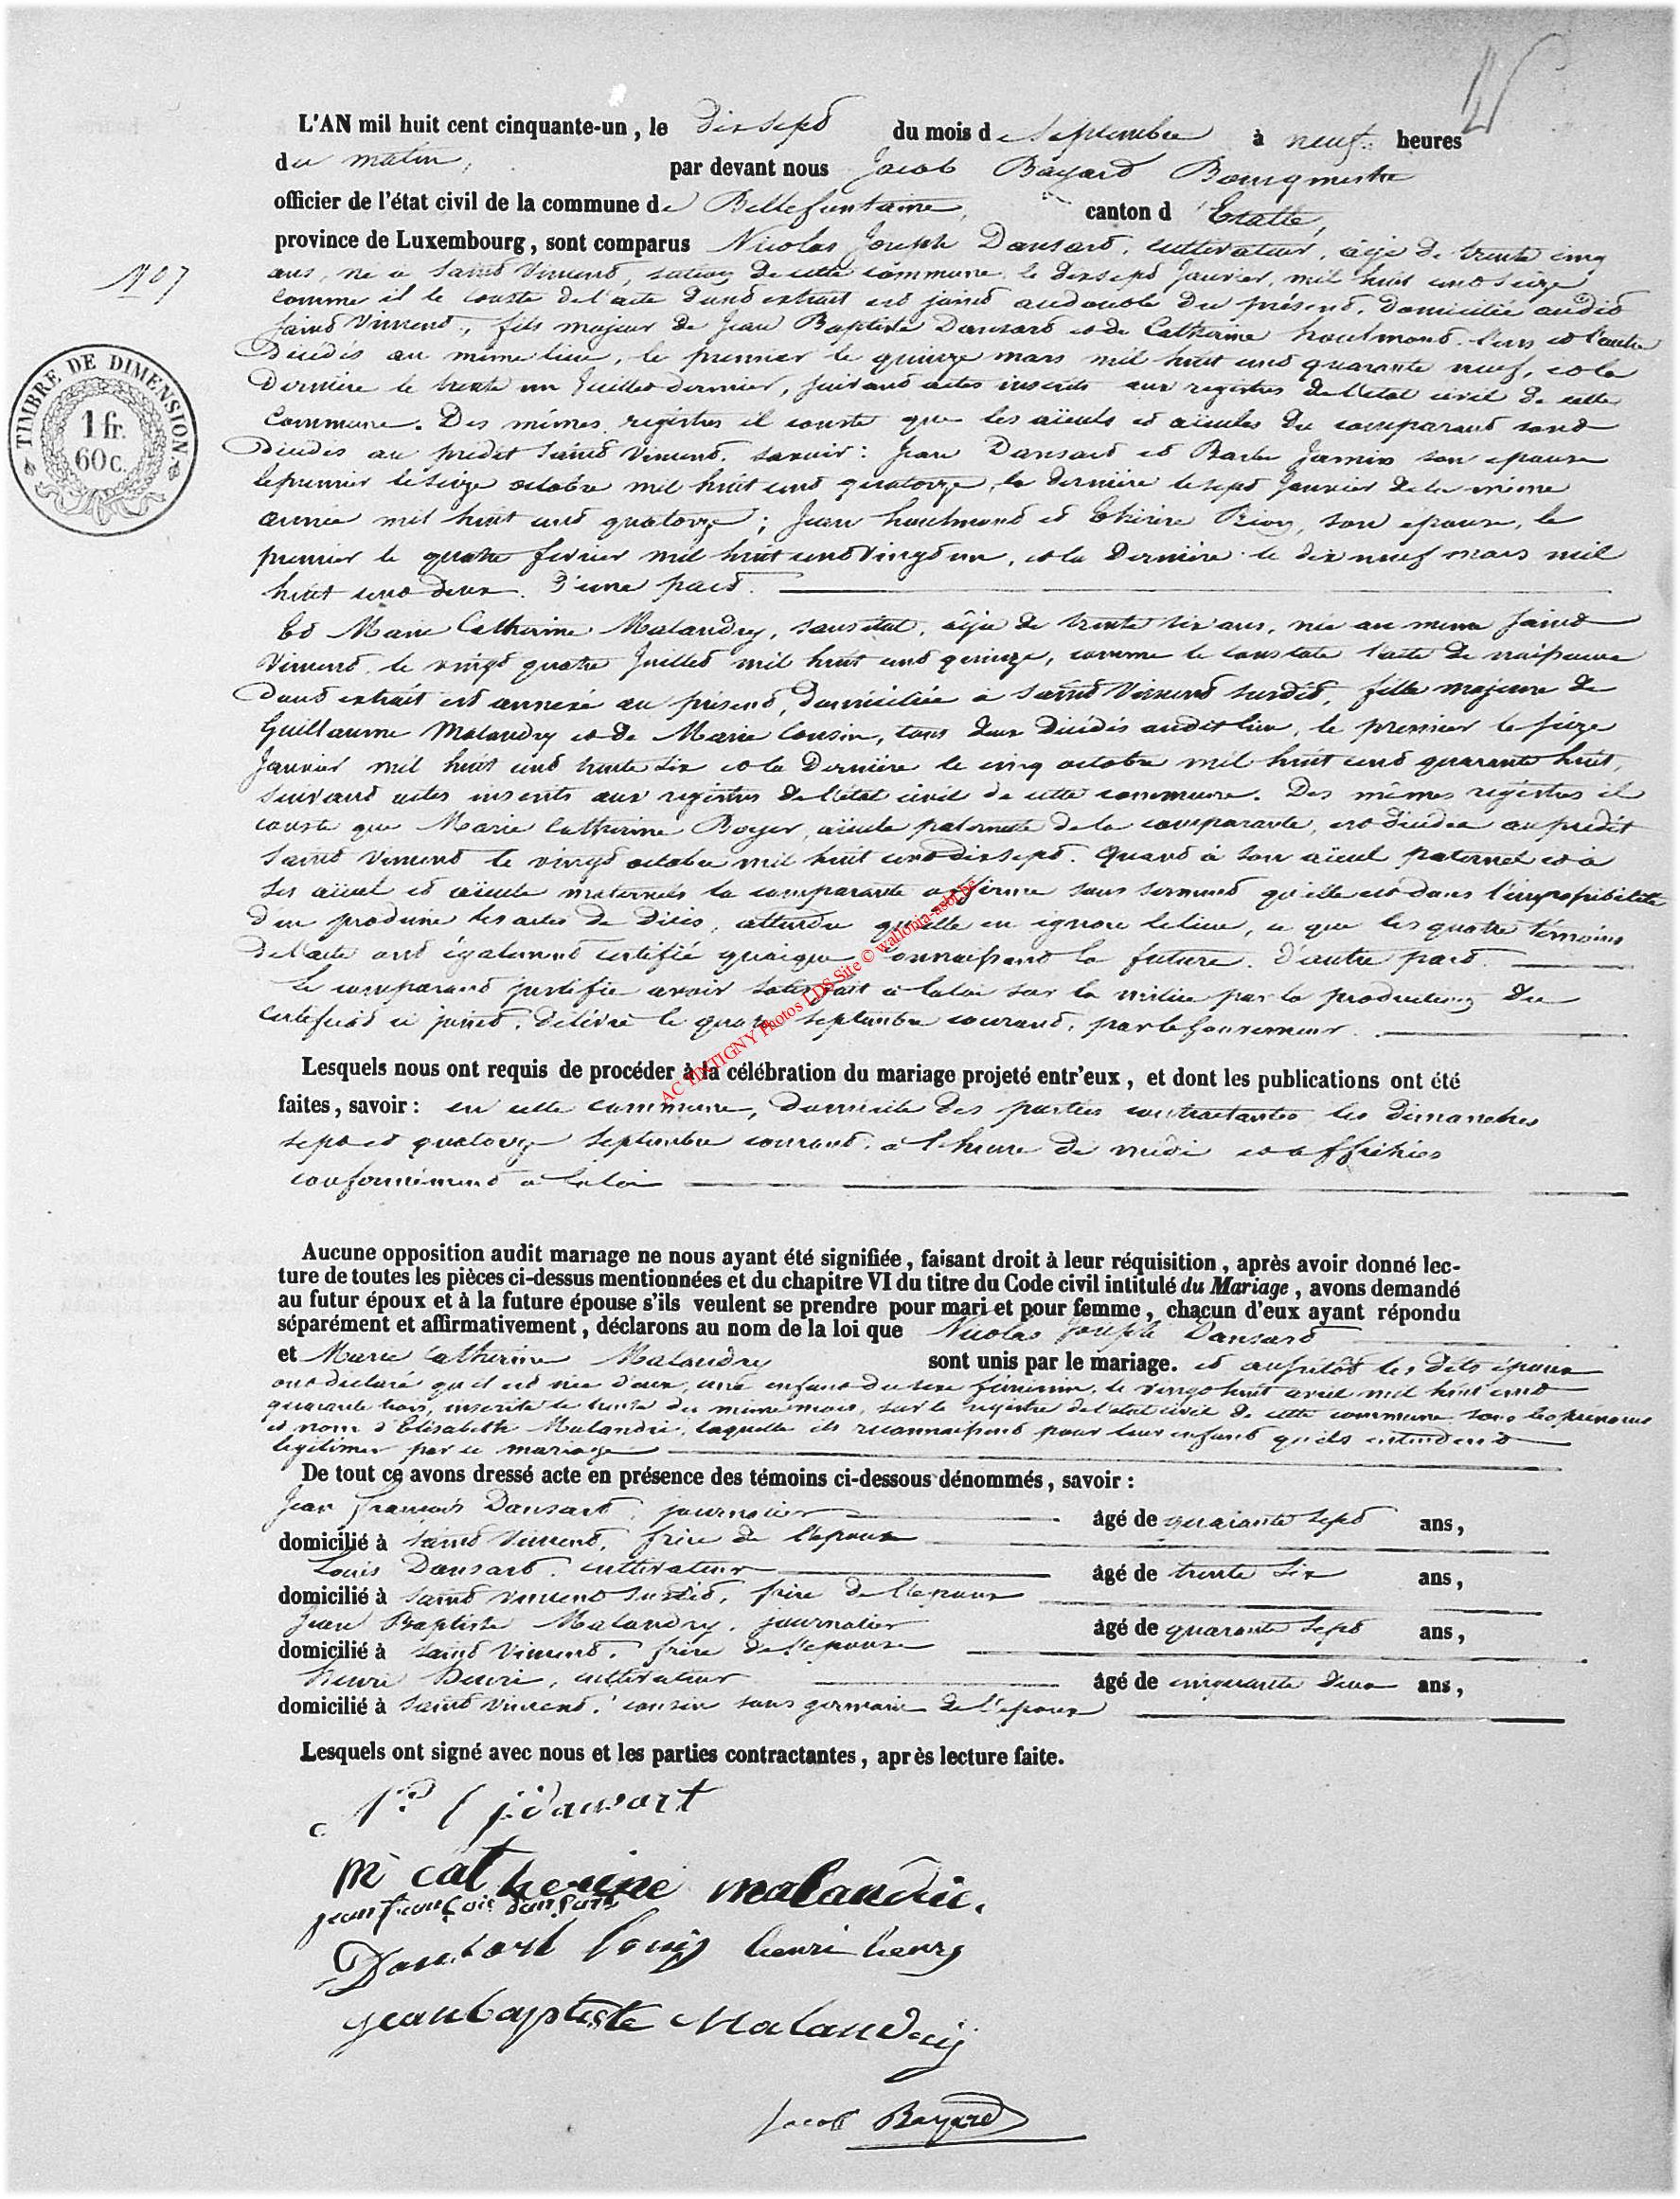 L'AN mil huit cent cinquante-un, le dix sept du mois de Septembre à neuf heures
du matin, par devant nous Jacob Bayard Bourgmestre
officier de l'état civil de la commune de Bellefontaine, canton d'Etalle,
province de Luxembourg, sont comparus Nicolas Joseph Dansard, cultivateur, âgé de trente cinq
N° 7
ans, né à Saint Vincent, section de cette commune, le dix sept Janvier mil huit cent seize
comme il le conste de l'acte dont extrait est joint au double du présent, domicilié audit
Saint Vincent, fils majeur de Jean Baptiste Dansard et de Catherine hautmont, l'un et l'autre
Décédés au même lieu, le premier le quinze mars mil huit cent quarante neuf, et la
dernière le trente un Juillet dernier, suivant actes inscrits aux registres de l'état civil de cette
TIMBRE DE DIMENSION.
1 fr.
60 c.
Commune. Des mêmes registres il conste que les aïeuls et aïeules du comparant sont
Décédés au predit Saint Vincent, savoir: Jean Dansard et Barbe Jamin son épouse
le premier le seize octobre mil huit cent quatorze, la dernière le sept Janvier de la même
année mil huit cent quatorze; Jean hautmont et Thérèse Rion, son épouse, le
premier le quatre fevrier mil huit cent vingt un, et la dernière le dix neuf mars mil
huit cent deux. D'une part.
Et Marie Catherine Malandry, sans état, âgée de trente six ans, née au même Saint
Vincent, le vingt quatre Juillet mil huit cent quinze, comme le constate l'acte de naissance
dont extrait est annexé au présent, domiciliée à Saint Vincent susdit, fille majeure de
Guillaume Malandry et de Marie Cousin, tous deux décédés audit lieu, le premier le seize
Janvier mil huit cent trente six et la dernière le cinq octobre mil huit cent quarante huit,
suivant actes inscrits aux registres de l'état civil de cette commune. Des mêmes registres il
conste que Marie Catherine Boyer, aïeule paternelle de la comparante, est décédée au prédit
Saint Vincent le vingt octobre mil huit cent dix sept. Quant à son aïeul paternel et à
ses aïeul et aïeule maternels la comparante affirme sous serment qu'elle est dans l'impossibilité
d'en produire les actes de décès, attendu qu'elle en ignore le lieu, ce que les quatre témoins
de l'acte ont également certifié quoique connaissant la future. D'autre part.
Le comparant justifie avoir satisfait à la loi sur la milice par la production du
Certificat ci joint, délivré le quatre septembre courant, par le Gouverneur.
AC TINTIGNY Photos LDS Site © wallonia-asbl.be
Lesquels nous ont requis de procéder à la célébration du mariage projeté entr'eux, et dont les publications ont été
faites, savoir: en cette commune, domicile des parties contractantes les dimanches
sept et quatorze Septembre courant, à l'heure de midi et affichées
conformément à la loi
Aucune opposition audit mariage ne nous ayant été signifiée, faisant droit à leur réquisition, après avoir donné lec-
ture de toutes les pièces ci-dessus mentionnées et du chapitre VI du titre du Code civil intitulé du Mariage, avons demandé
au futur époux et à la future épouse s'ils veulent se prendre pour mari et pour femme, chacun d'eux ayant répondu
séparément et affirmativement, déclarons au nom de la loi que Nicolas Joseph Dansard
et Marie Catherine Malandry sont unis par le mariage. et aussitôt les dits époux
ont déclaré qu'il est née d'eux, une enfant du sexe féminin, le vingt huit avril mil huit cent
quarante trois, inscrite le trente du même mois, sur le registre de l'état civil de cette commune sous les prénoms
et nom d'Elisabeth Malandri, laquelle ils reconnaissent pour leur enfant qu'ils entendent
légitimer par ce mariage
De tout ce avons dressé acte en présence des témoins ci-dessous dénommés, savoir:
Jean François Dansard, journalier âgé de quarante sept ans,
domicilié à Saint Vincent, frère de l'époux
Louis Dansard, cultivateur âgé de trente six ans,
domicilié à Saint Vincent susdit, frère de l'époux
Jean Baptiste Malandry, journalier âgé de quarante sept ans,
domicilié à Saint Vincent, frère de l'épouse
henri henri, cultivateur âgé de cinquante deux ans,
domicilié à Saint Vincent, cousin sous germain de l'époux
Lesquels ont signé avec nous et les parties contractantes, après lecture faite.
j dansart
m catherine malandrie.
jean françois dansart
Dansart louis henri henry
jean baptiste Malandry
Jacob Bayard